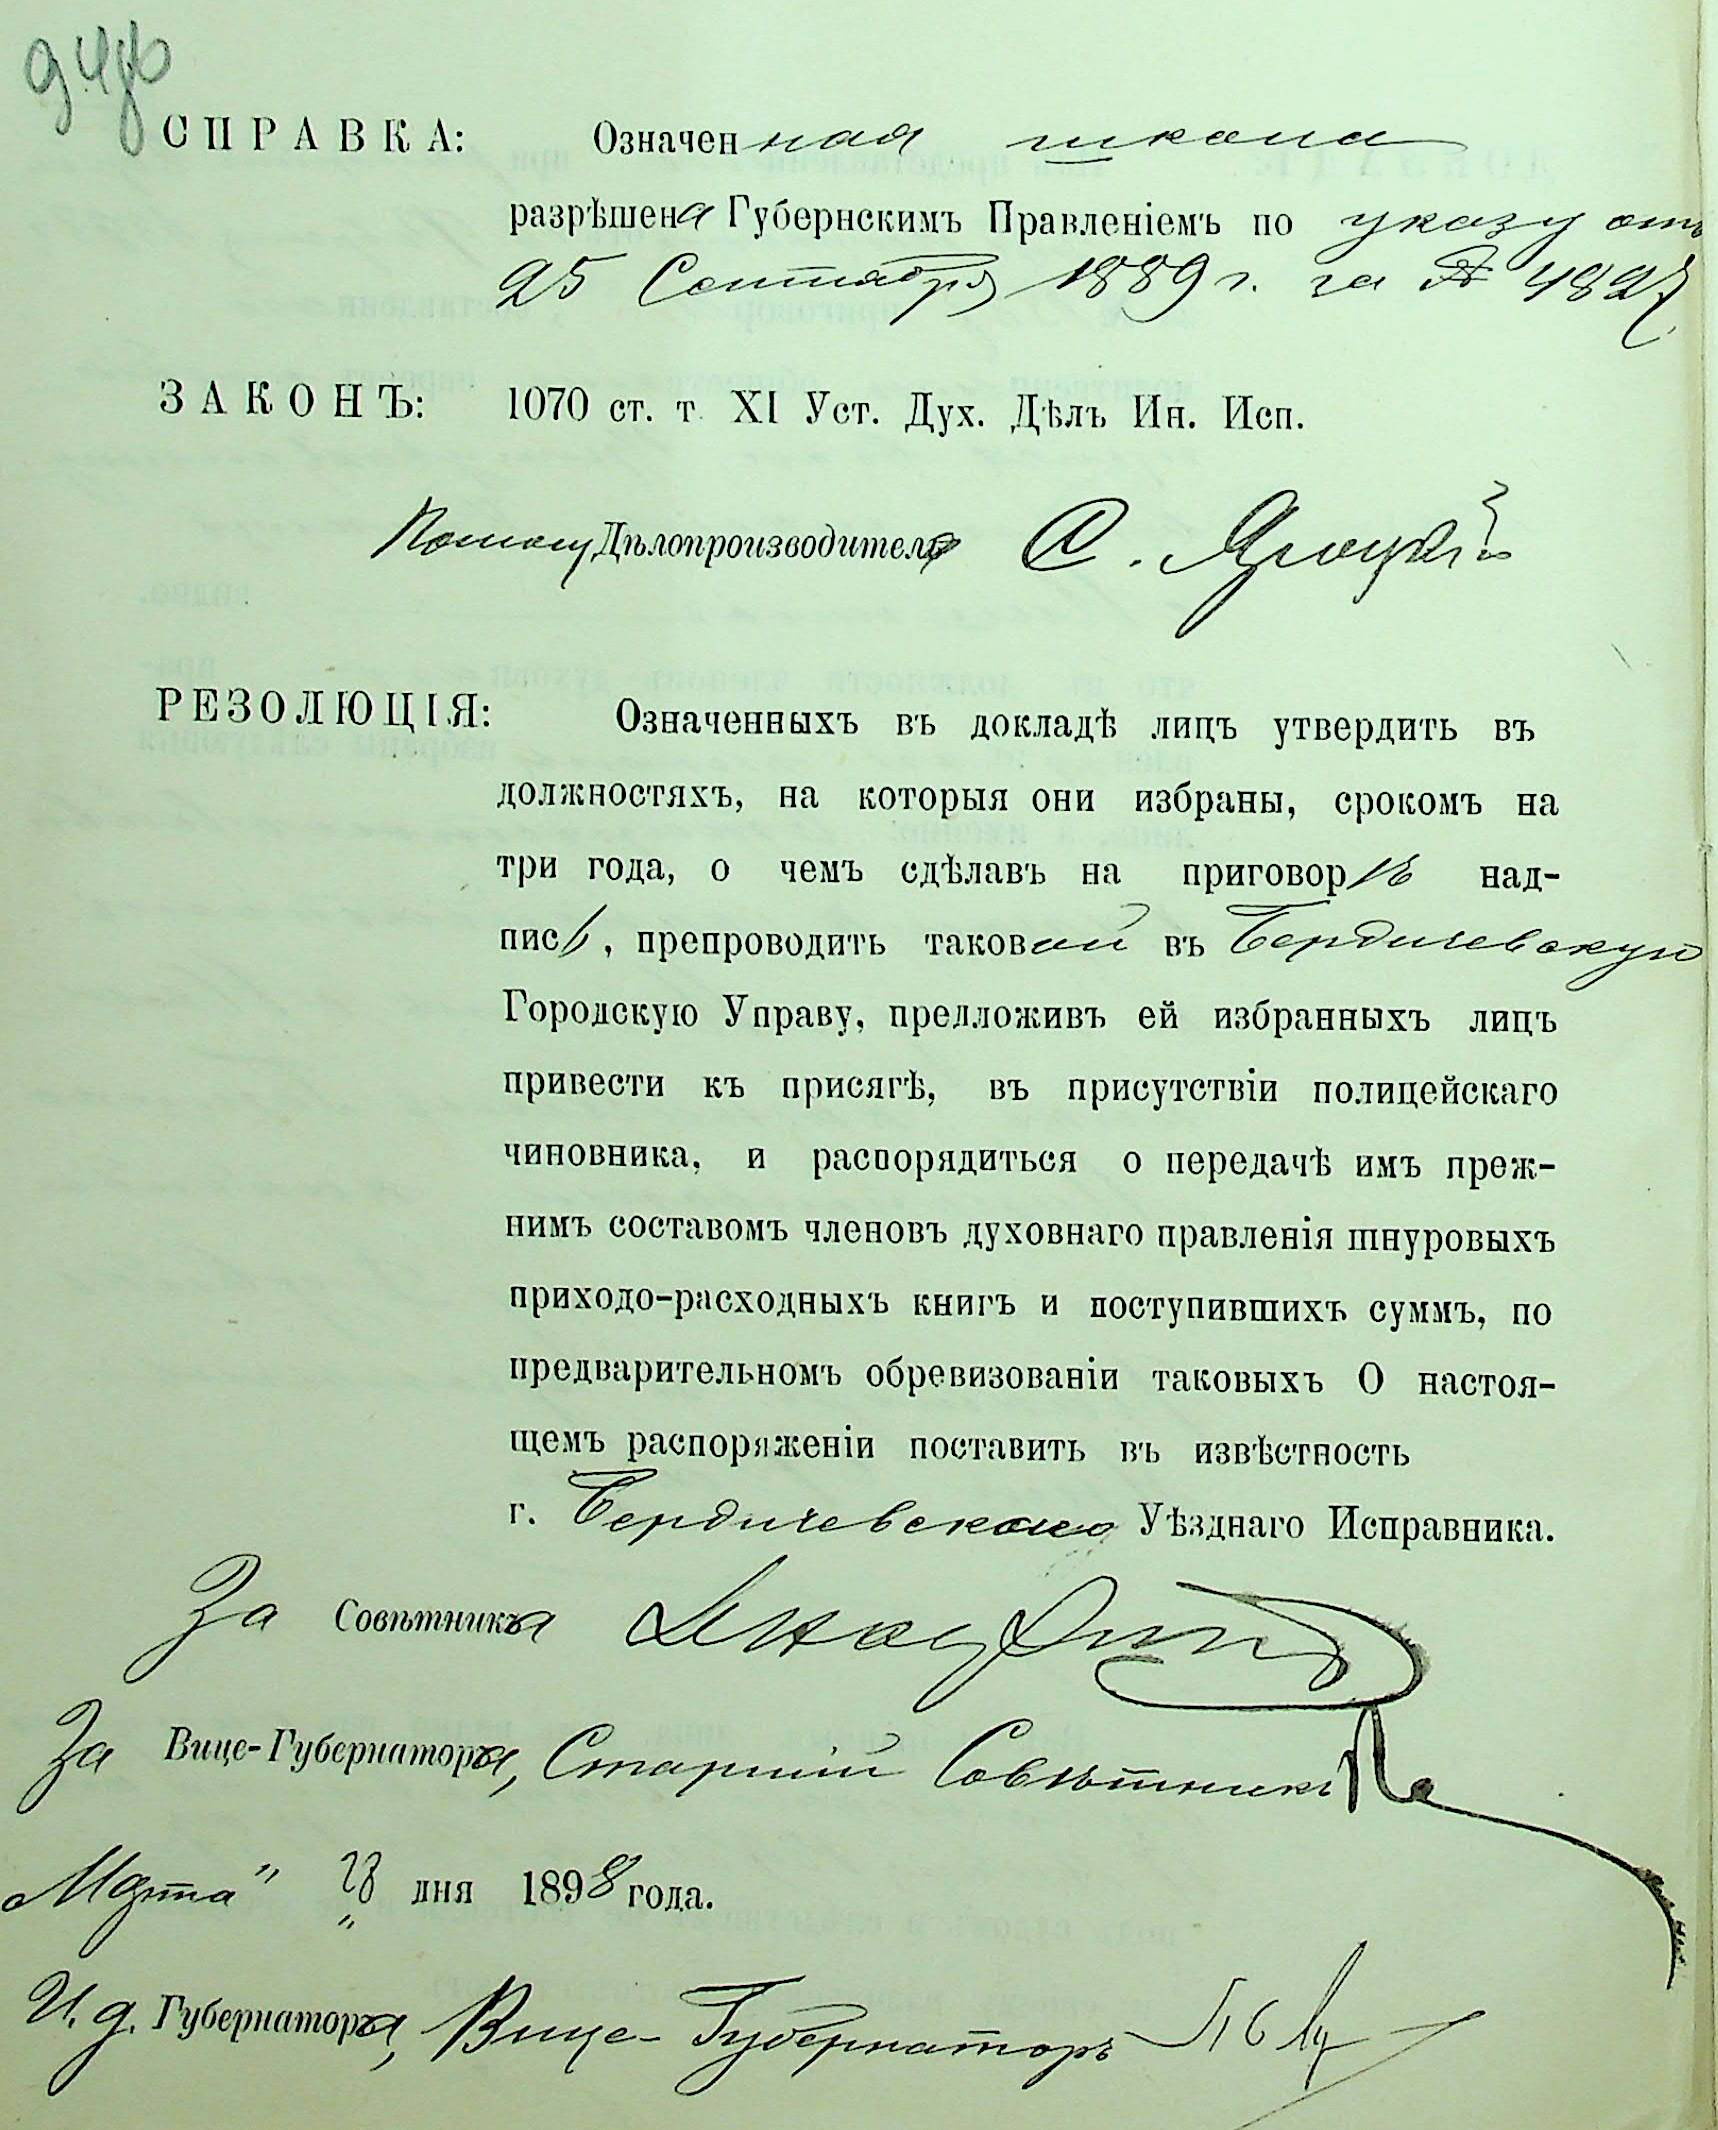 СПРАВКА: Означенная школа
разрѣшена Губернскимъ Правленіемъ по указу отъ
25 Сентября 1889 г. за № 4827
ЗАКОНЪ: 1070 ст. т. XI Уст. Дух. Дѣлъ Ин. Исп.
Помощ Дѣлопроизводителя С. Яроцкій
РЕЗОЛЮЦІЯ: Означенныхъ въ докладѣ лицъ утвердить въ
должностяхъ, на которыя они избраны, срокомъ на
три года, о чемъ сдѣлавъ на приговорѣ над-
пись, препроводить таковой въ Бердичевскую
Городскую Управу, предложивъ ей избранныхъ лицъ
привести къ присягѣ, въ присутствіи полицейскаго
чиновника, и распорядиться о передачѣ имъ преж-
нимъ составомъ членовъ духовнаго правленія шнуровыхъ
приходо-расходныхъ книгъ и поступившихъ суммъ, по
предварительномъ обревизованіи таковыхъ О настоя-
щемъ распоряженіи поставить въ извѣстность
г. Бердичевскаго Уѣзднаго Исправника.
За Совѣтника
За Вице-Губернатора, Старшій Совѣтникъ
Марта" 28 дня 1898 года.
И. д. Губернатора, Вице-Губернаторъ